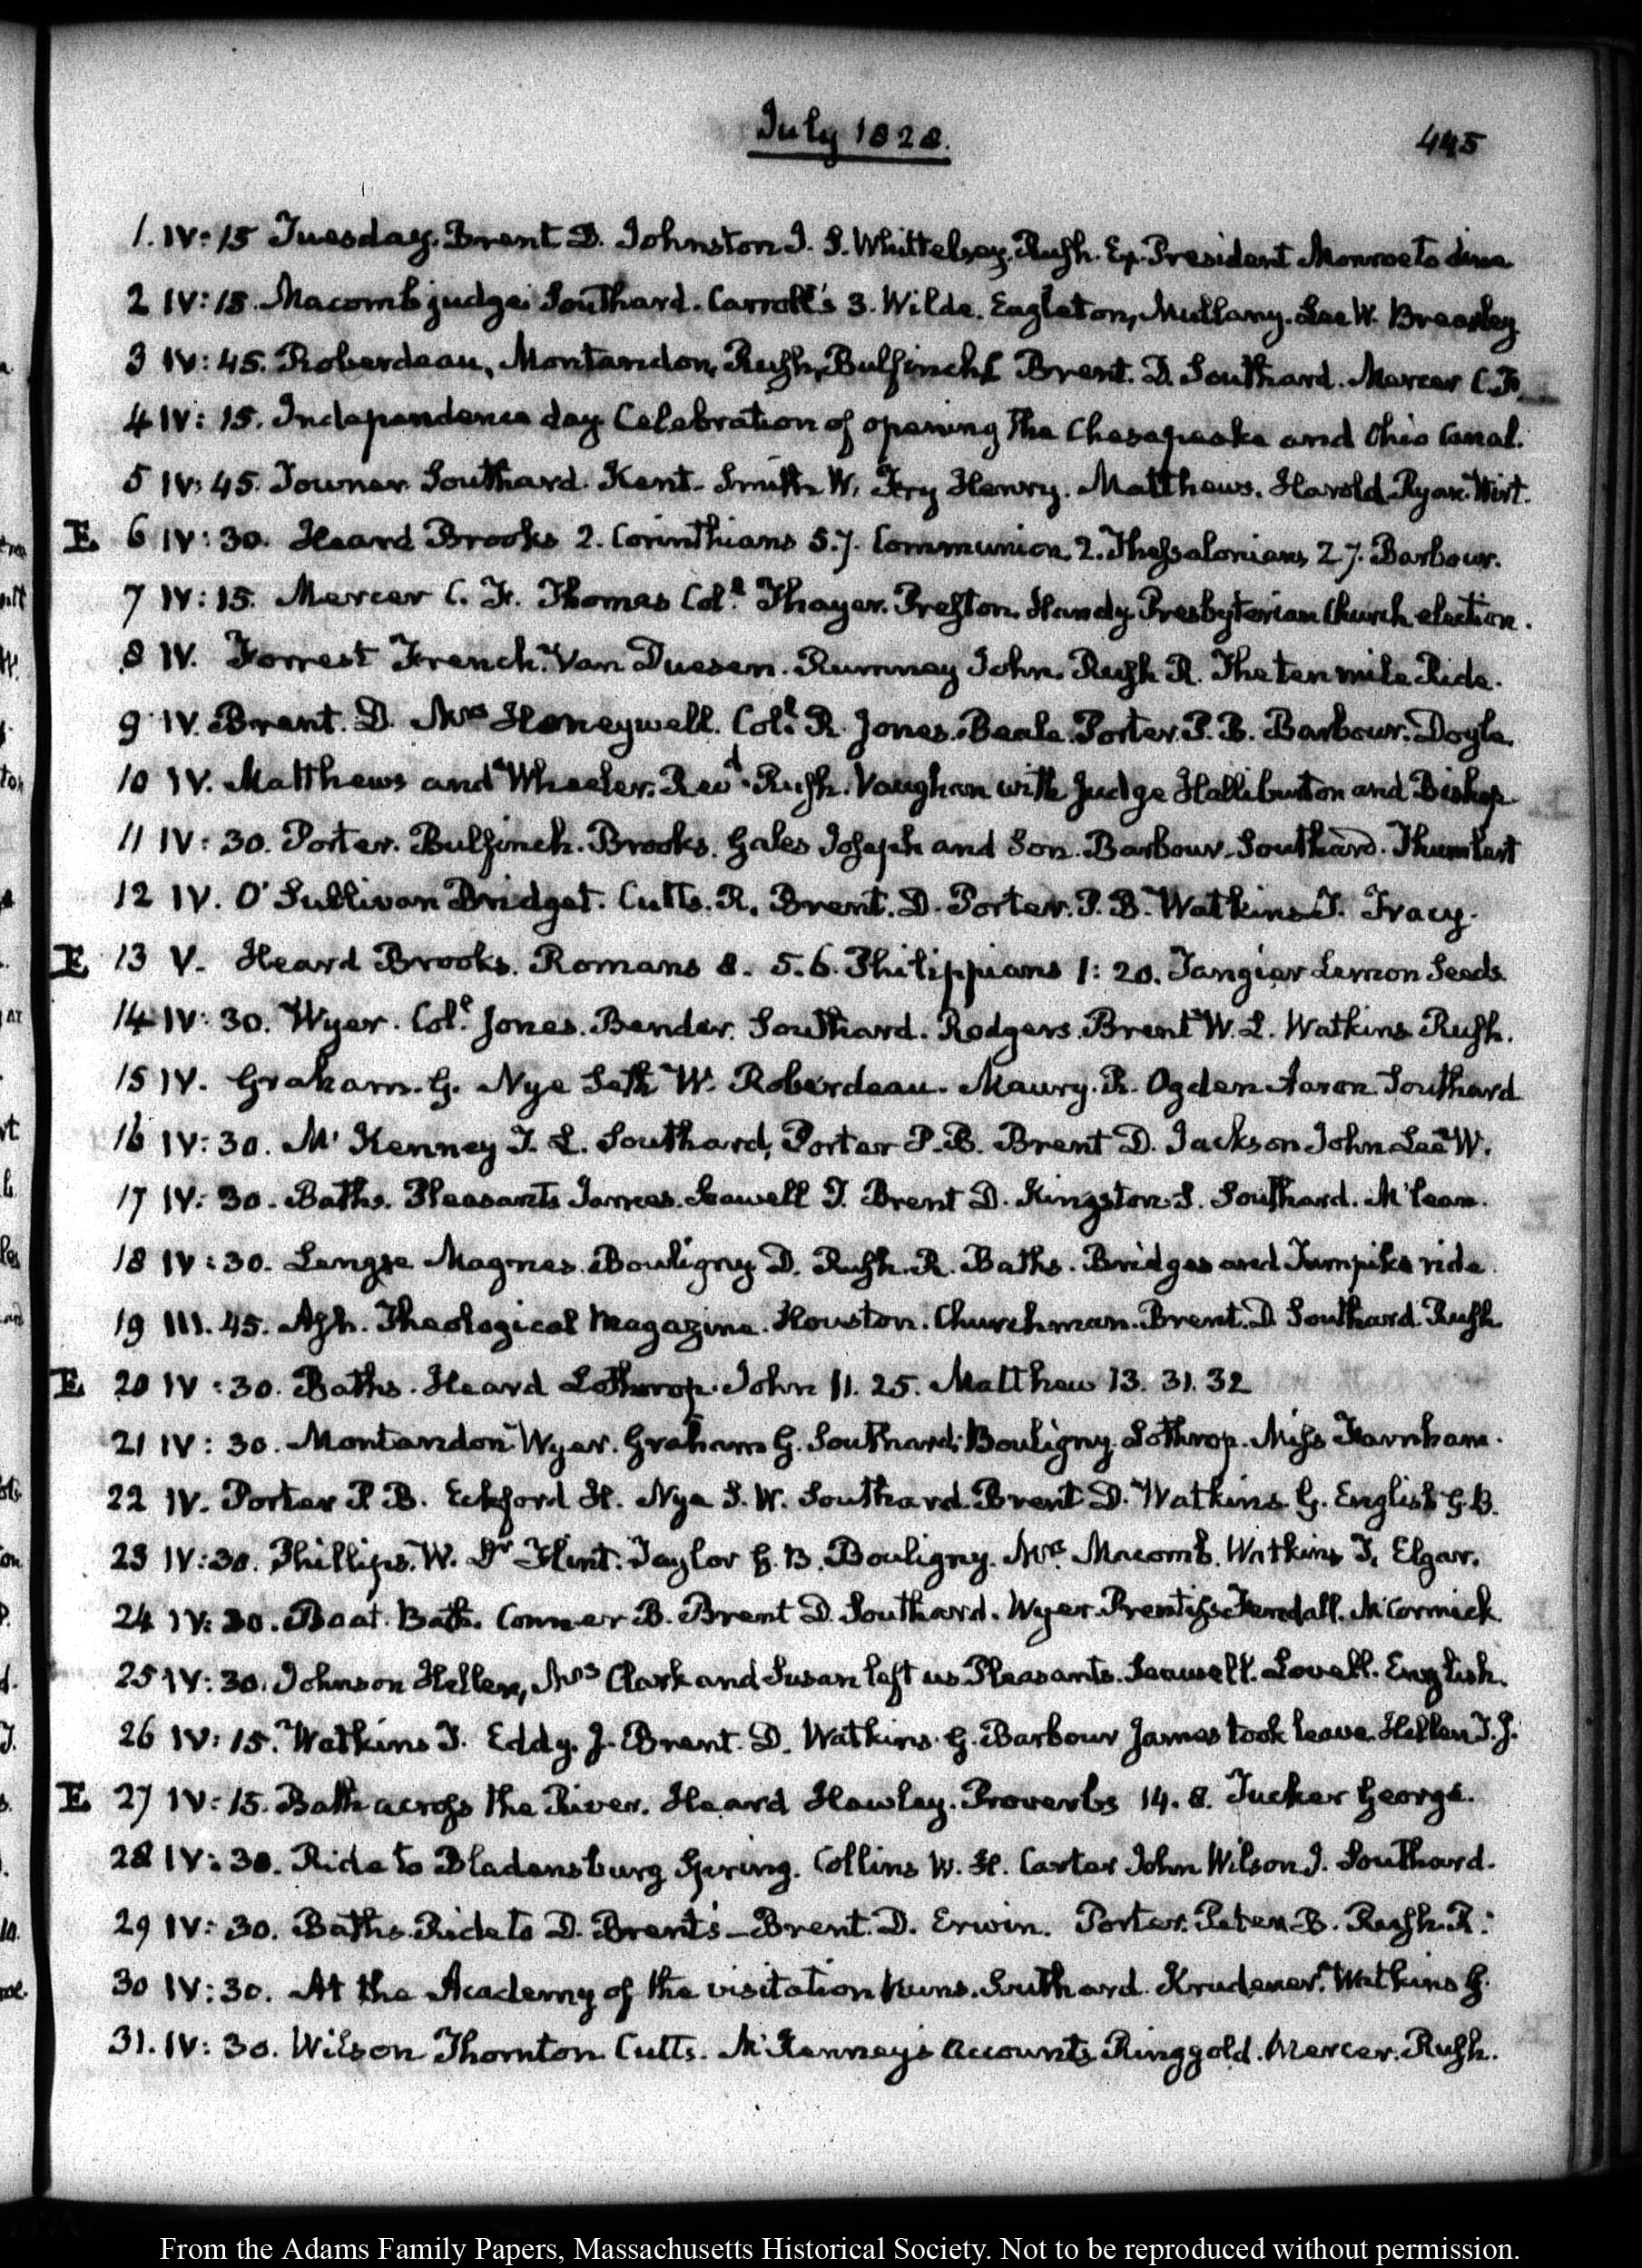 July 1828.
445
1. IV: 15 Tuesday. Brent D. Johnston J. S. Whittelsey. Rush. Ex-President Monroe to dine
2 IV: 15. Macomb judge Southard. Carroll's 3. Wilde. Eagleton, Mullany. Lee W. Brearley
3 IV: 45. Roberdeau, Montandon, Rush, Bulfinch Brent. D. Southard. Mercer C. F.
4 IV: 15. Independence day Celebration of opening the Chesapeake and Ohio Canal.
5 IV: 45. Towner Southard. Kent. Smith W. Henry. Matthews. Harold Ryan. Wirt.
E 6 IV: 30. Heard Brooks 2. Corinthians 5. 7. Communion. 2. Thessalonians 2 7. Barbour.
7 IV: 15. Mercer C. F. Thomas Coll. Thayer. Preston. Handy. Presbyterian Church election.
8 IV. Forrest French. Van Duesen. Rumney John. Rush R. The ten mile Ride.
9 IV. Brent. D. Mrs Honeywell. Coll. R. Jones. Beale. Porter. P. B. Barbour. Doyle.
10 IV. Matthews and Wheeler. Revd. Rush. Vaughan with Judge Halliburton and Bishop
11 IV: 30. Porter. Bulfinch. Brooks. Gales Joseph and Son. Barbour. Southard.
12 IV. O'Sullivan Bridget. Cutts. R. Brent. D. Porter. P. B. Watkins T. Tracy.
E 13 V. Heard Brooks. Romans 8. 5. 6. Philippians 1: 20. Tangier Lemon Seeds.
14 IV: 30. Wyer. Coll. Jones. Bender. Southard. Rodgers. Brent W. L. Watkins Rush.
15 IV. Graham. G. Nye Seth W. Roberdeau. Maury. R. Ogden Aaron Southard
16 IV: 30. McKenney T. L. Southard, Porter P. B. Brent D. Jackson John Lee W.
17 IV: 30. Baths. Pleasants James. Seawell T. Brent D. Kingston S. Southard. McLean.
18 IV: 30. Lengge Magnes. Bouligny D. Rush. R. Baths. Bridges and Turnpike ride.
19 III. 45. Ash. Theological Magazine. Houston. Churchman. Brent. D. Southard. Rush
E 20 IV: 30. Baths. Heard Lothrop. John 11. 25. Matthew 13. 31. 32
21 IV: 30. Montandon Wyer. Graham G. Southard. Bouligny. Lothrop. Miss Farnham.
22 IV. Porter P B. Eckford H. Nye S. W. Southard. Brent D. Watkins. G. English G. B.
23 IV: 30. Phillips. W. Dr Flint. Taylor G. B. Bouligny. Mrs. Macomb. Watkins T. Elgar.
24 IV: 30. Boat. Bath. Conner B. Brent D. Southard. Wyer. Prentiss Fendall. McCormick
25 IV: 30. Johnson Hellen, Mrs Clark and Susan left us Pleasants. Seawell. Lovell. English.
26 IV: 15. Watkins T. Eddy. J. Brent. D. Watkins. G. Barbour James took leave. Hellen T. J.
E 27 IV: 15. Bath across the River. Heard Hawley. Proverbs 14. 8. Tucker George.
28 IV: 30. Ride to Bladensburg Spring. Collins W. H. Carter John Wilson J. Southard.
29 IV: 30. Baths. Ride to D. Brent's - Brent. D. Erwin. Porter. Peter B. Rush. R.
30 IV: 30. At the Academy of the visitation Nuns. Southard. Krudener. Watkins G.
31. IV: 30. Wilson Thornton Cutts. McKenney's Accounts. Ringgold. Mercer. Rush.
From the Adams Family Papers, Massachusetts Historical Society. Not to be reproduced without permission.